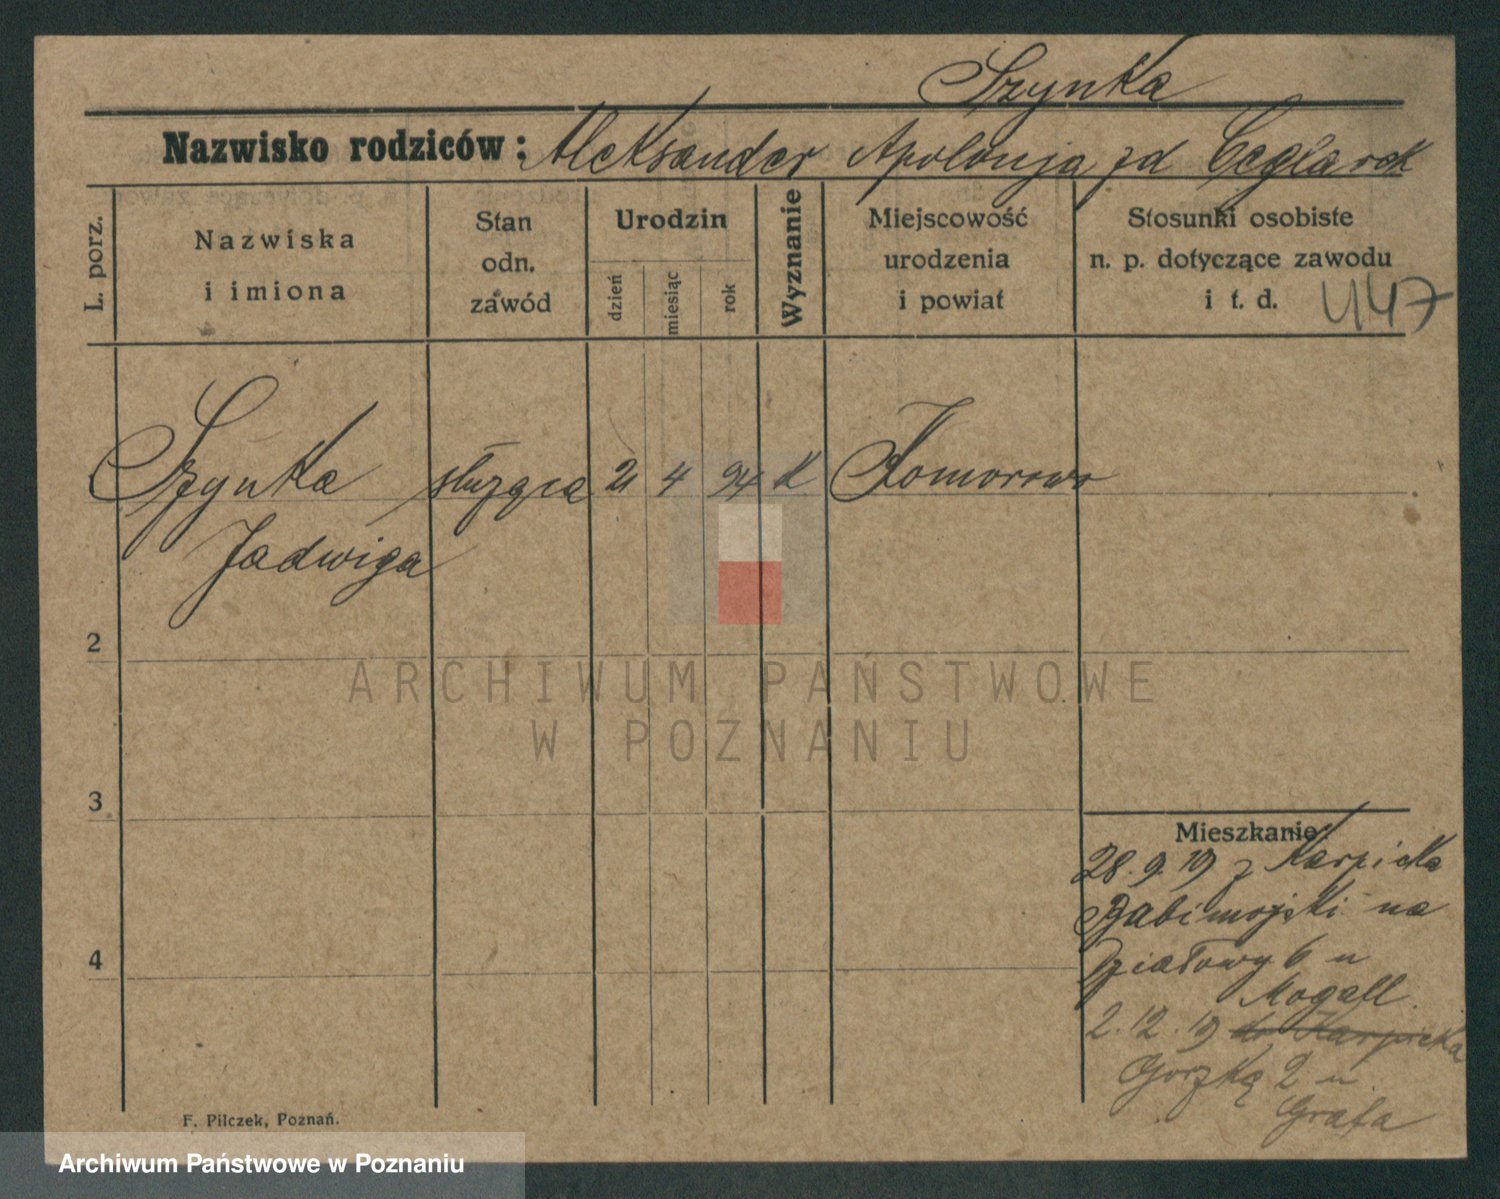 Szynka
Nazwisko rodziców: Aleksander Apolonja zd Ceglarek
L. porz.
Nazwiska
i imiona
Stan
odn.
zawód
Urodzin
dzień
miesiąc
rok
Wyznanie
Miejscowość
urodzenia
i powiat
Stosunki osobiste
n. p. dotyczące zawodu
i t. d. 447
Szynka służąca 21 4 94 K Komorowo
Jadwiga
2
ARCHIWUM PAŃSTWOWE
W POZNANIU
3
Mieszkanie:
28.9.19 z Karpicka
Babimojski na
4
Działowy 6 u
Mogall
2.12.19 do Karpicka
Gorzką 2 u
Grafa
F. Pilczek, Poznań.
Archiwum Państwowe w Poznaniu